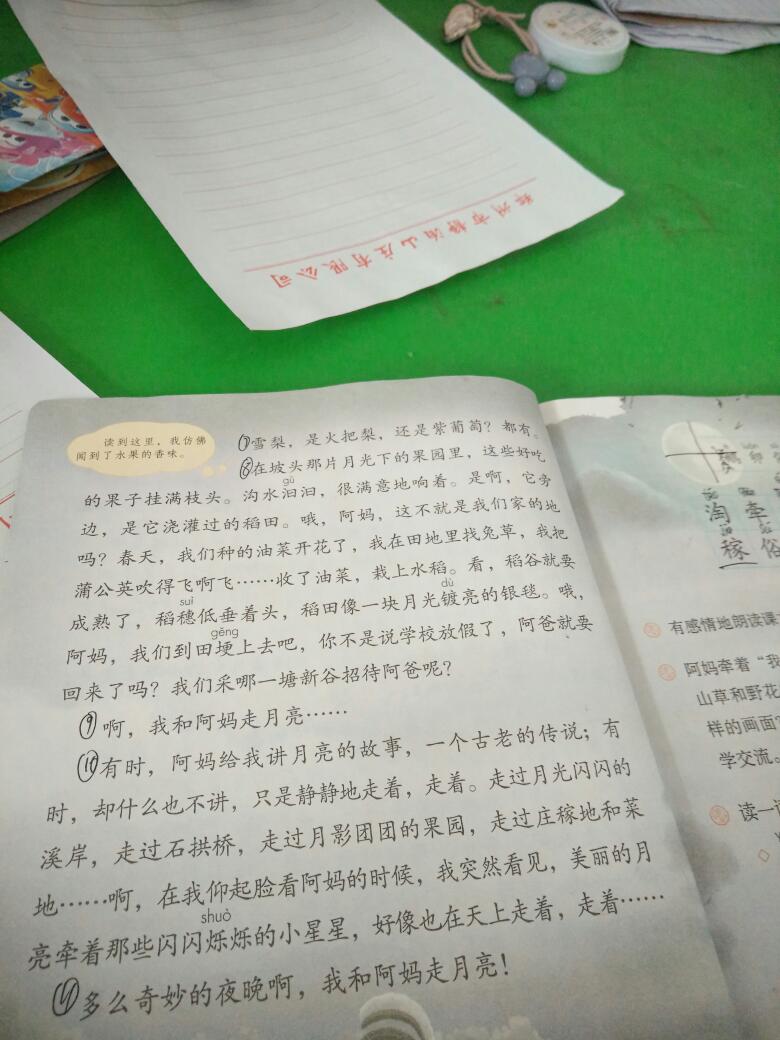 郑州市静泊山庄有限公司
读到这里，我仿佛
闻到了水果的香味。
⑦雪梨，是火把梨，还是紫葡萄？都有。
⑧在坡头那片月光下的果园里，这些好吃
gǔ
的果子挂满枝头。沟水汩汩，很满意地响着。是啊，它旁
边，是它浇灌过的稻田。哦，阿妈，这不就是我们家的地
吗？春天，我们种的油菜开花了，我在田地里找兔草，我把
蒲公英吹得飞啊飞……收了油菜，栽上水稻。看，稻谷就要
suì dù
成熟了，稻穗低垂着头，稻田像一块月光镀亮的银毯。哦，
gěng
阿妈，我们到田埂上去吧，你不是说学校放假了，阿爸就要
回来了吗？我们采哪一塘新谷招待阿爸呢？
⑨啊，我和阿妈走月亮……
⑩有时，阿妈给我讲月亮的故事，一个古老的传说；有
时，却什么也不讲，只是静静地走着，走着。走过月光闪闪的
溪岸，走过石拱桥，走过月影团团的果园，走过庄稼地和菜
地……啊，在我仰起脸看阿妈的时候，我突然看见，美丽的月
shuò
亮牵着那些闪闪烁烁的小星星，好像也在天上走着，走着……
⑪多么奇妙的夜晚啊，我和阿妈走月亮！
淘 牵
稼 俗
有感情地朗读课
阿妈牵着“我
山草和野花
样的画面
学交流。
读一读